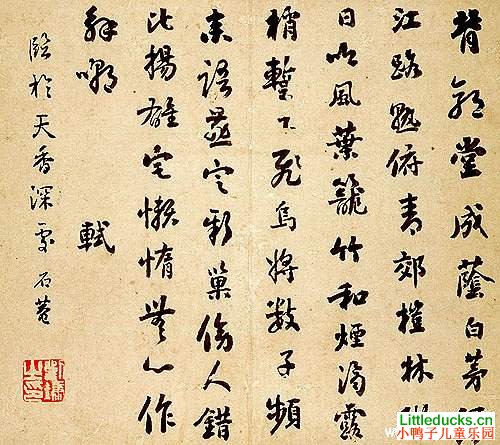 背郭堂成蔭白茅
江路熟俯青郊榿林
日吟風葉籠竹和煙滴露
梢暫下飛烏將數子頻
來語燕定新巢傍人錯
比揚雄宅懶惰無心作
解嘲 軾
臨於天香深處 石菴
劉墉之印
Littleducks.cn
小鸭子儿童乐园